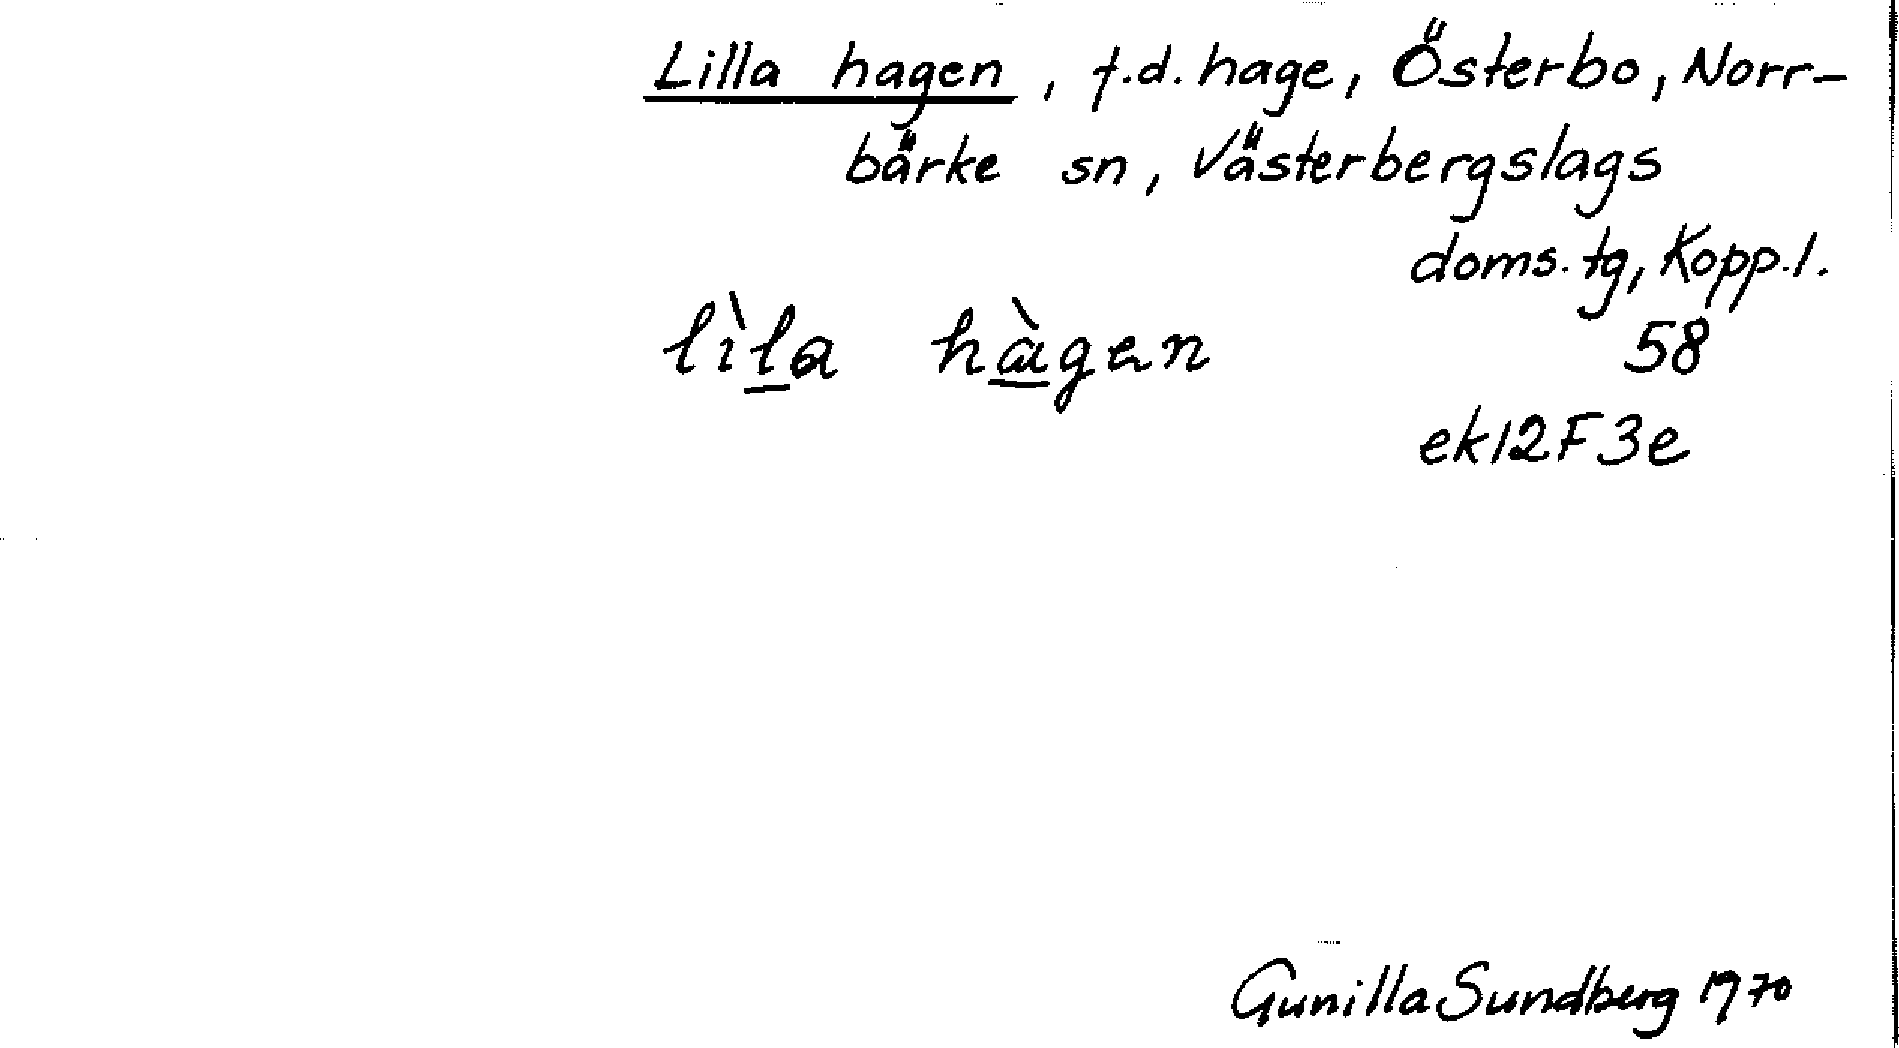 Lilla hagen, f.d. hage, Österbo, Norr-
bärke sn, Västerbergslags
doms. tg, Kopp. l.
lìla hàgen 58
ek 12F3e
Gunilla Sundberg 1970